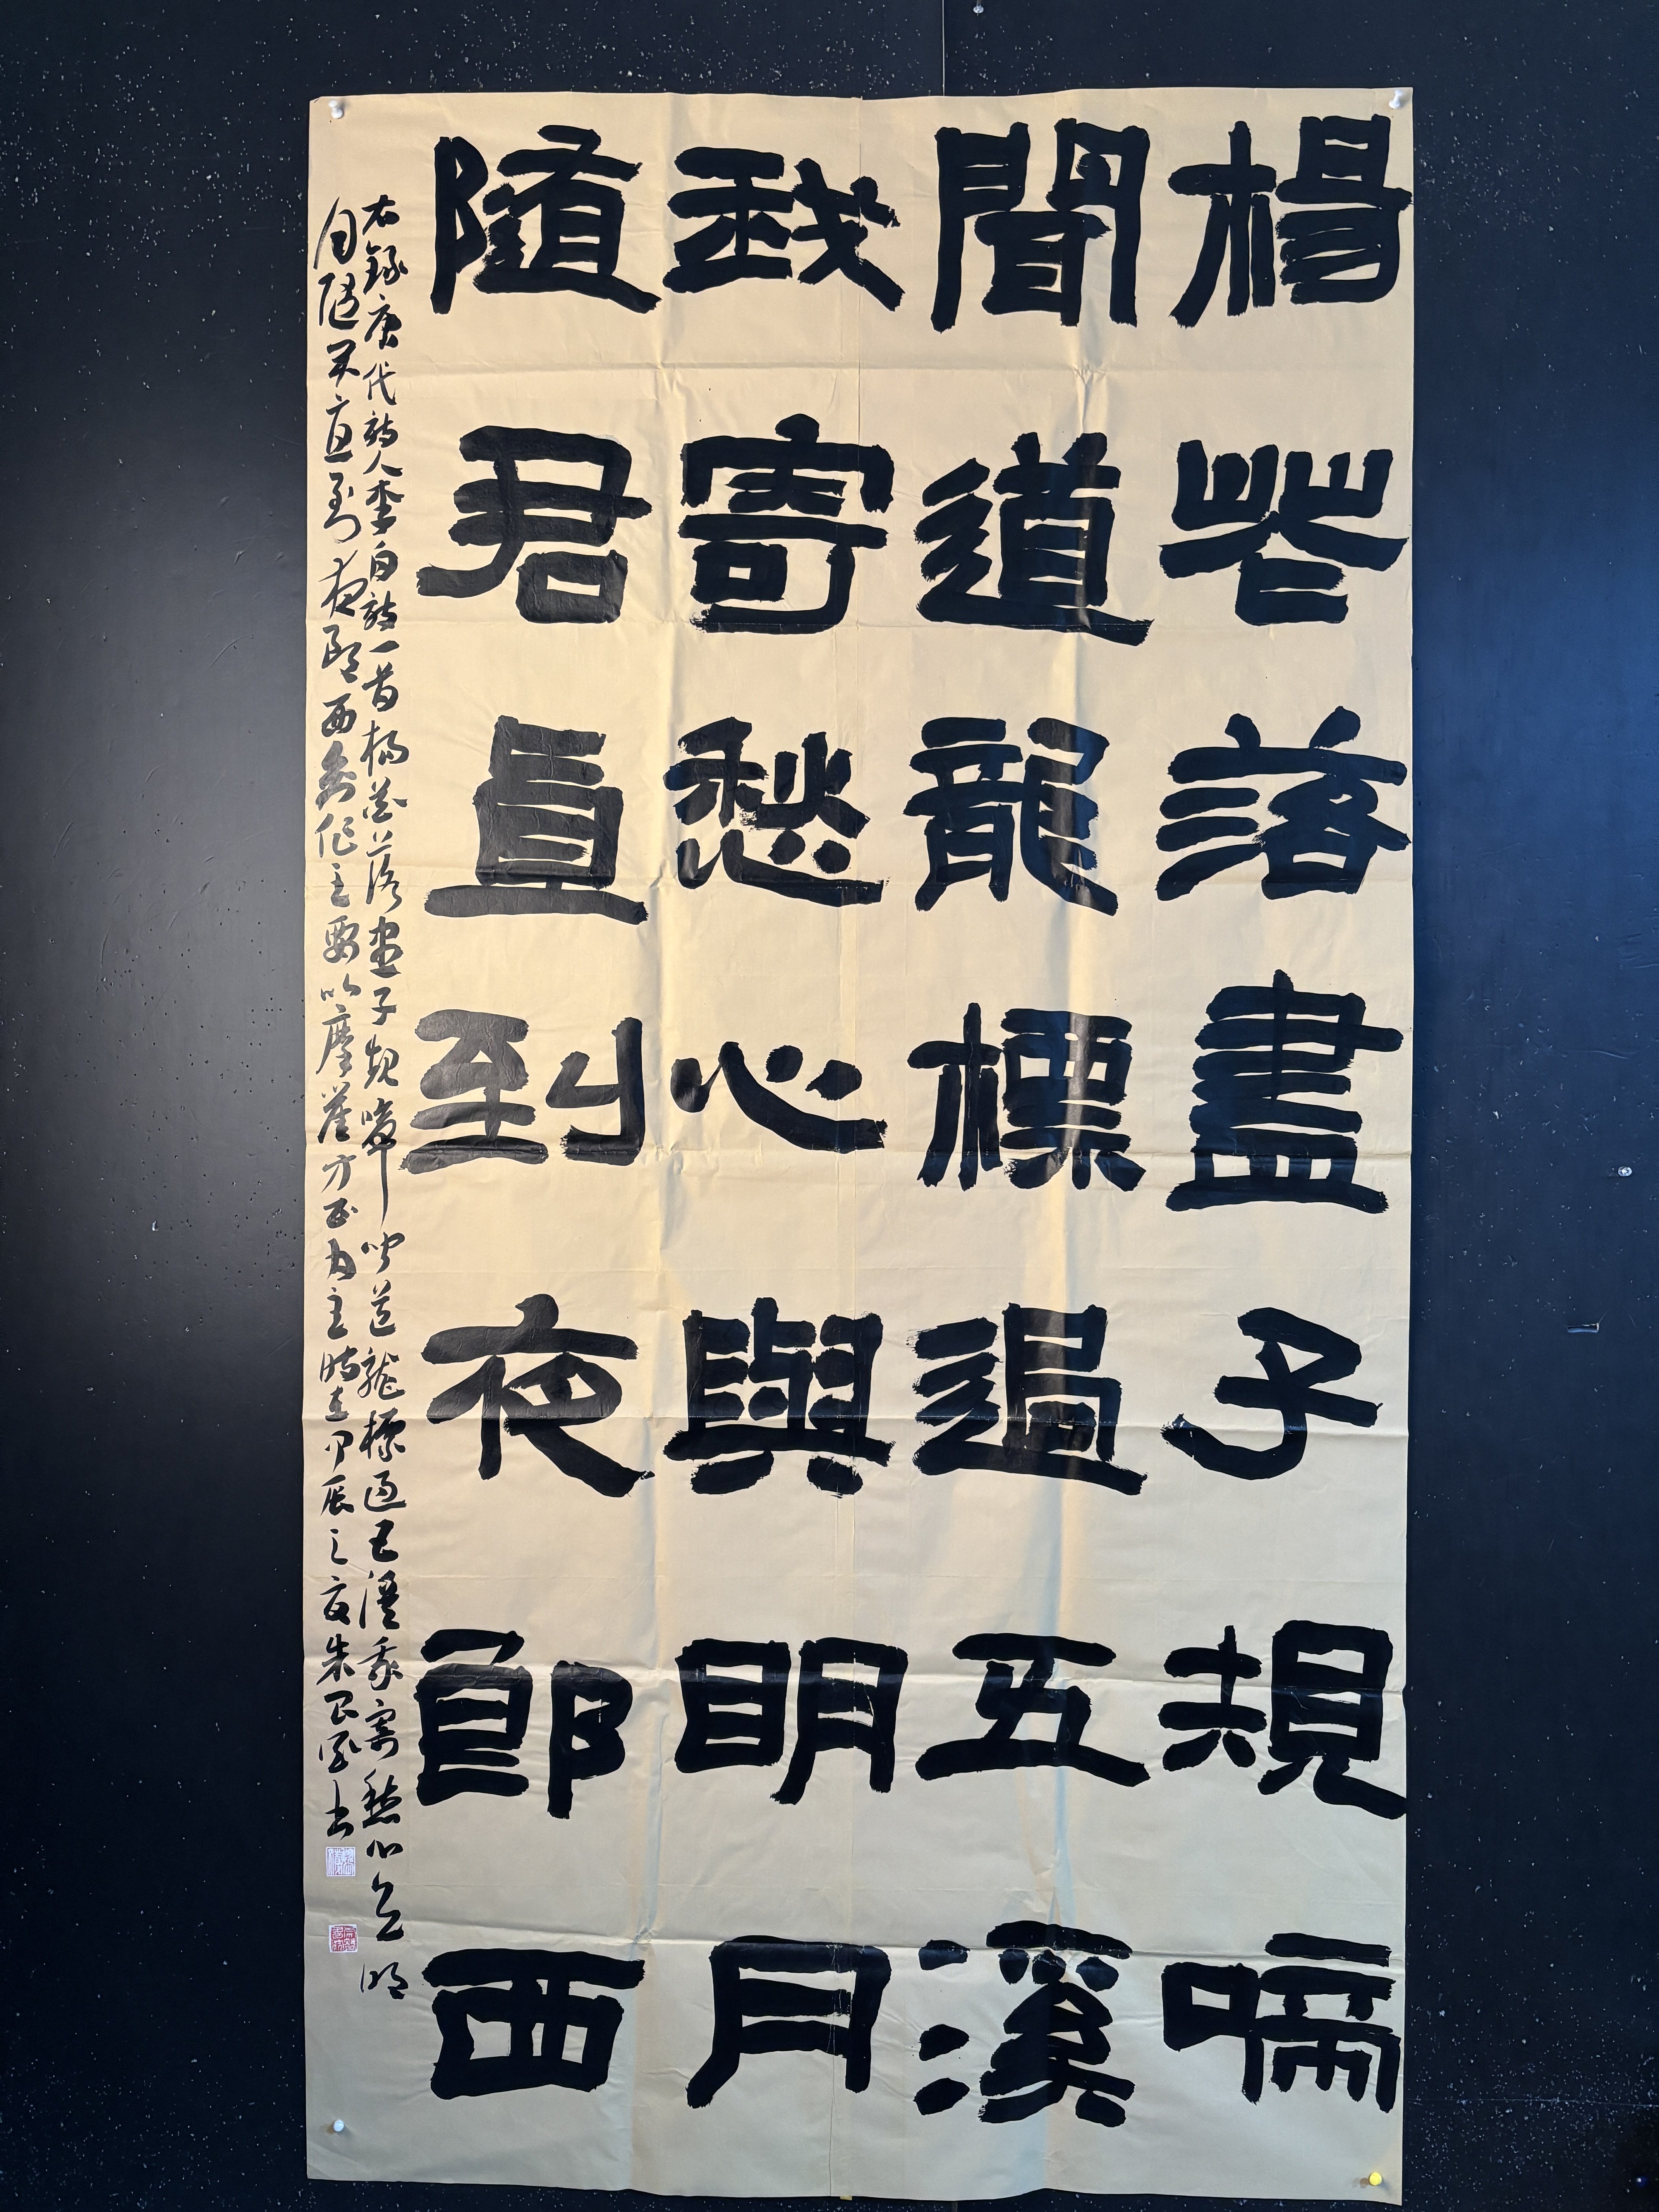 楊花落盡子規啼
聞道龍標過五溪
我寄愁心與明月
隨君直到夜郎西
右錄唐代詩人李白詩一首楊花落盡子規啼聞道龍標過五溪我寄愁心與明月
隨君直到夜郎西 作主要以摩崖方正為主時在甲辰之夏朱 書